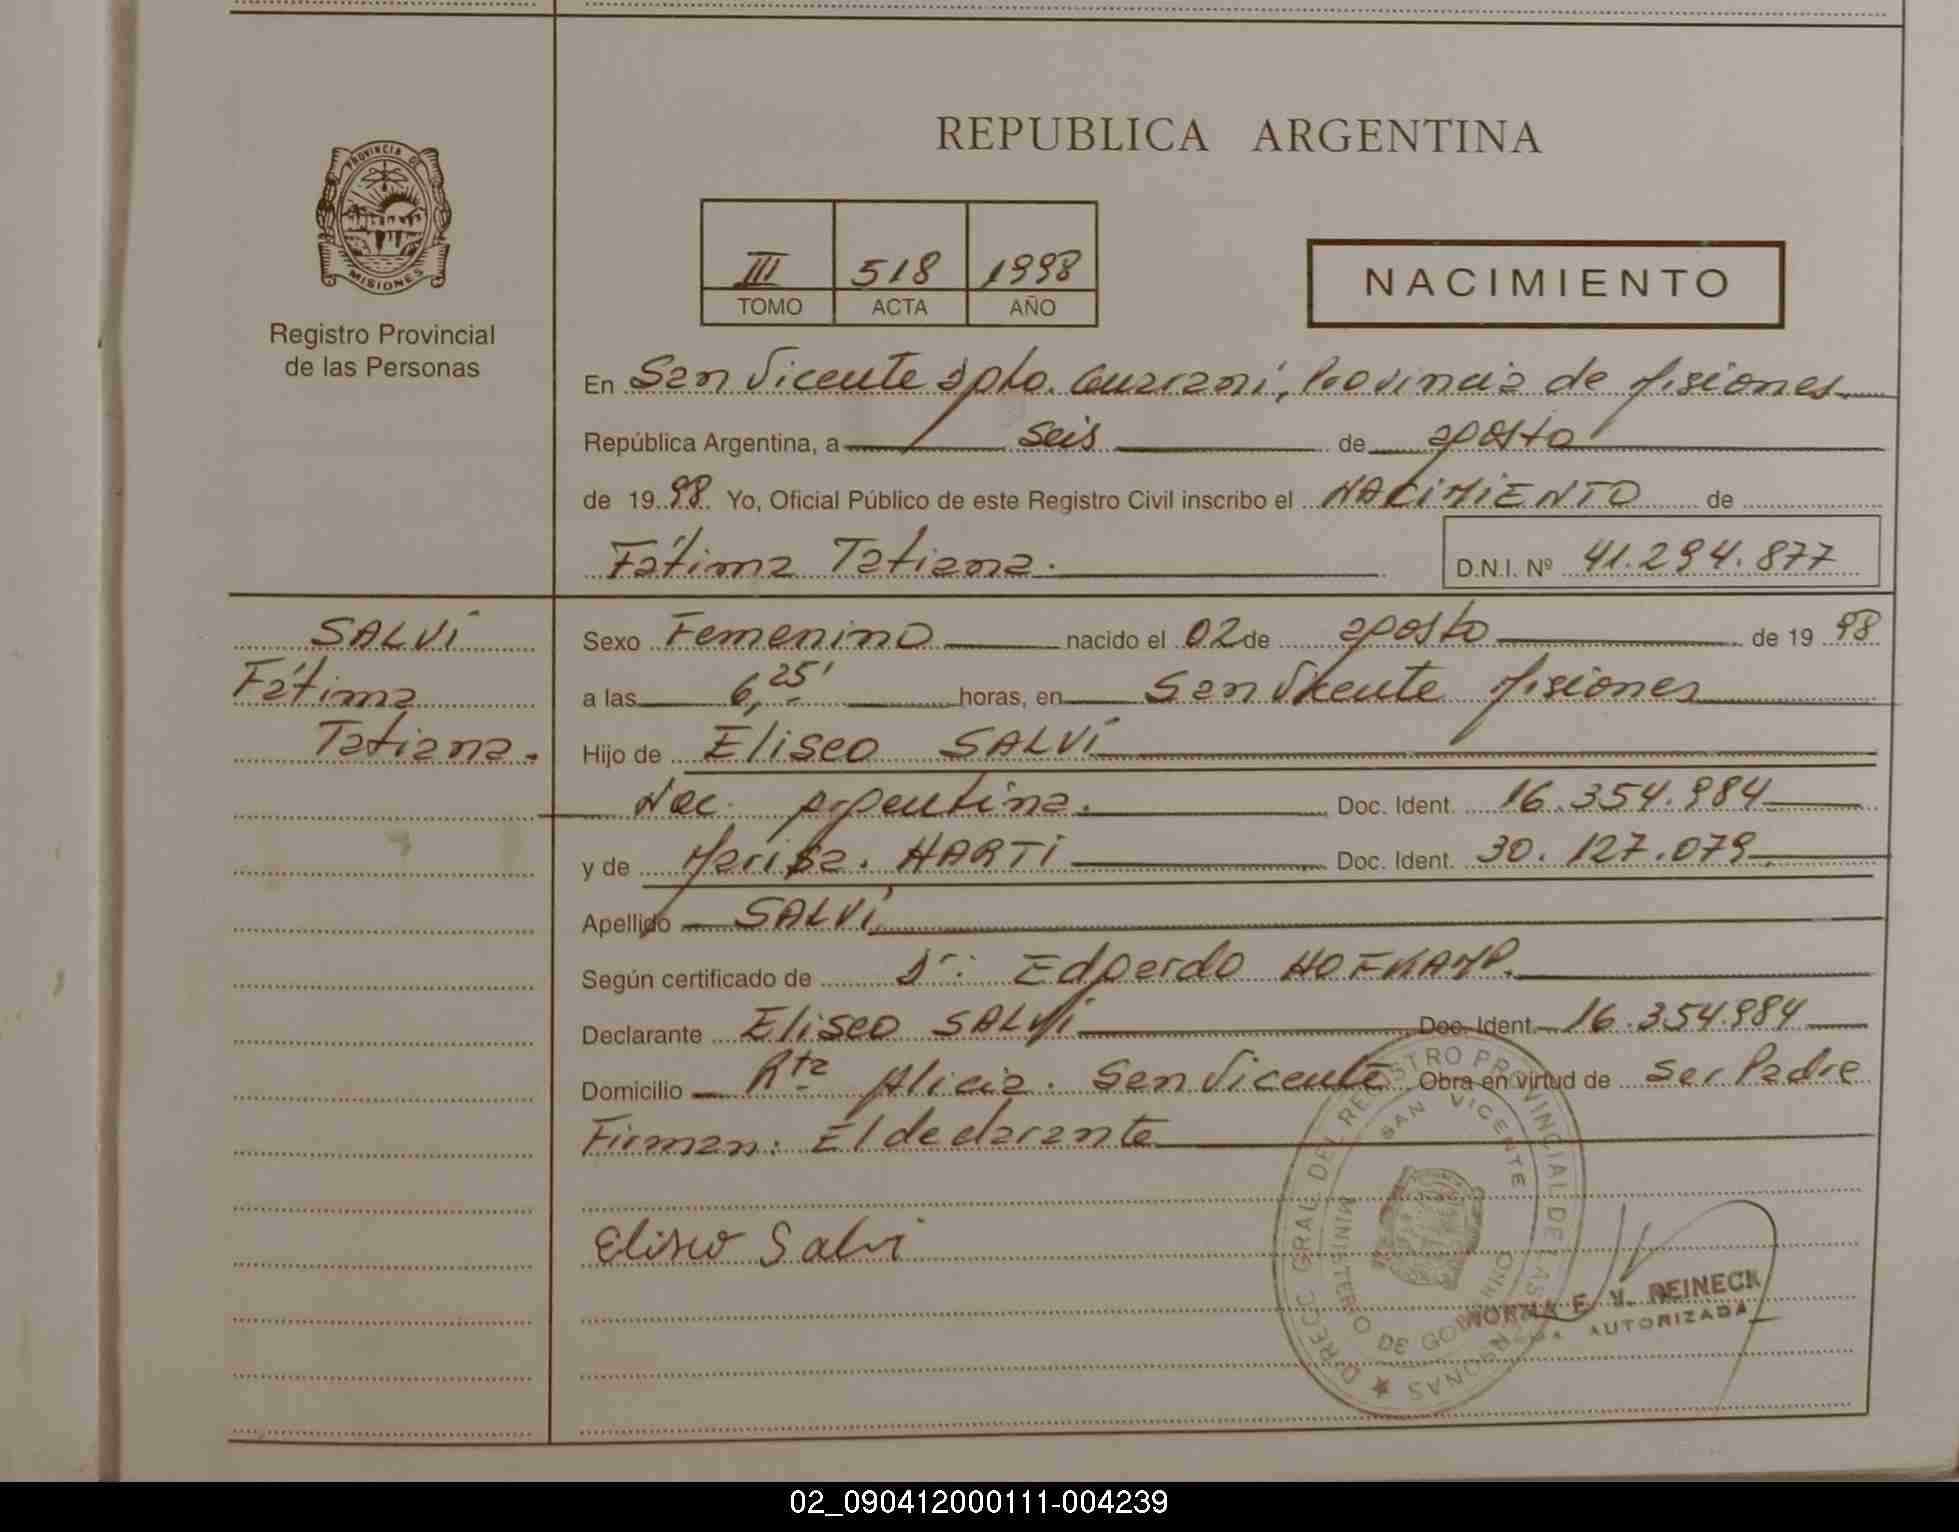 REPUBLICA ARGENTINA
PROVINCIA DE
MISIONES
Registro Provincial
de las Personas
III 518 1998
TOMO ACTA AÑO
NACIMIENTO
En San Vicente Dpto. Guaraní, Provincia de Misiones
República Argentina, a seis de agosto
de 1998 Yo, Oficial Público de este Registro Civil inscribo el NACIMIENTO de
Fátima Tatiana. D.N.I. Nº 41.294.877
SALVI
Fátima
Tatiana.
Sexo Femenino nacido el 02 de agosto de 1998
a las 6,25' horas, en San Vicente Misiones
Hijo de Eliseo SALVI
Nac. Argentina. Doc. Ident. 16.354.984
y de Marisa. HARTI Doc. Ident. 30.127.079
Apellido SALVI
Según certificado de Dr: Edgardo
Declarante Eliseo SALVI Doc. Ident. 16.354.984
Domicilio Rta Alicia. San Vicente Obra en virtud de ser Padre
Firman: El declarante
Eliseo Salvi
DIRECC GRAL DEL REGISTRO PROVINCIAL DE LAS PERSONAS
SAN VICENTE
MINISTERIO DE GOBIERNO
NORMA E. V. REINECK
AUTORIZADA
02_090412000111-004239